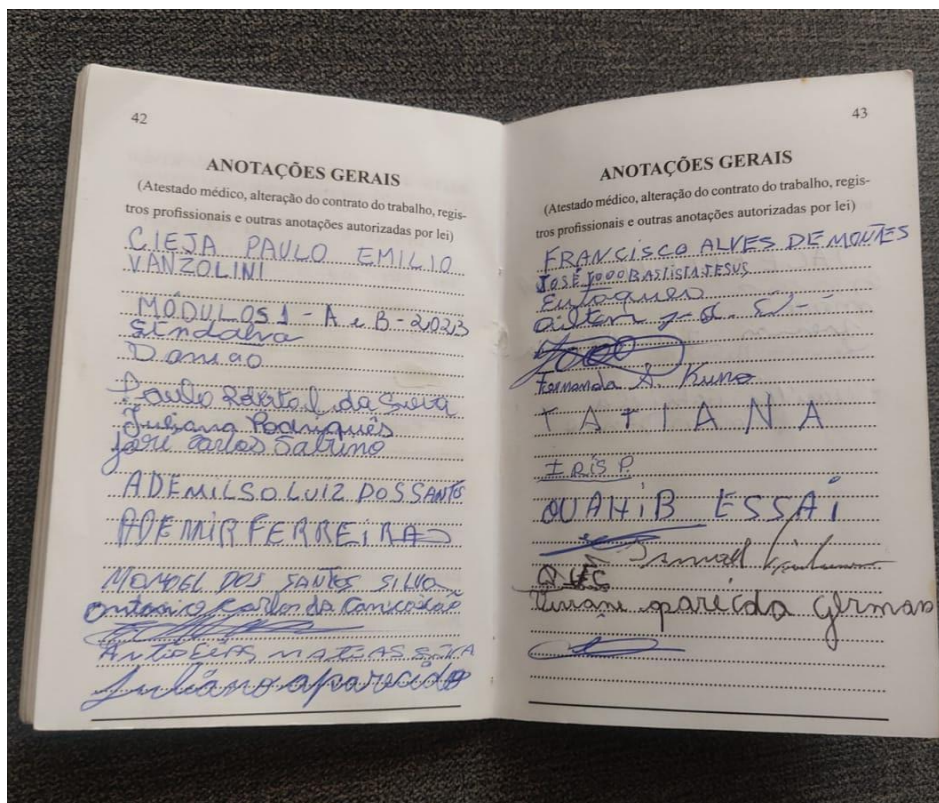 42
ANOTAÇÕES GERAIS
(Atestado médico, alteração do contrato do trabalho, regis-
tros profissionais e outras anotações autorizadas por lei)
CIEJA PAULO EMILIO
VANZOLINI
MÓDULOS 1 - A e B - 2023
Sindalva
Damiao
Paulo da Silva
Juliana Rodrigues
José Carlos Sabino
ADEMILSO LUIZ DOS SANTOS
ADEMIR FERREIRA
MANOEL DOS SANTOS SILVA
Antonio Carlos da Conceição
MATIAS SILVA
Juliano aparecido
43
ANOTAÇÕES GERAIS
(Atestado médico, alteração do contrato do trabalho, regis-
tros profissionais e outras anotações autorizadas por lei)
FRANCISCO ALVES DE MONTES
JOSÉ JOOO BASTISTA JESUS
Fernanda A. Kuno
TATIANA
IRIS P.
OUAHIB ESSAI
Ismael
aparecida germano